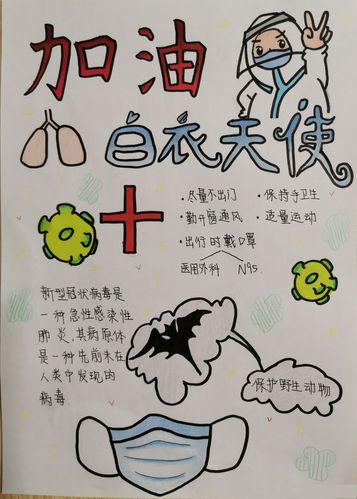 加油
白衣天使
·尽量不出门 ·保持手卫生
·勤开窗通风 ·适量运动
·出行时戴口罩
医用外科 N95
新型冠状病毒是
一种急性感染性
肺炎,其病原体
是一种先前未在
人类中发现的
病毒
保护野生动物